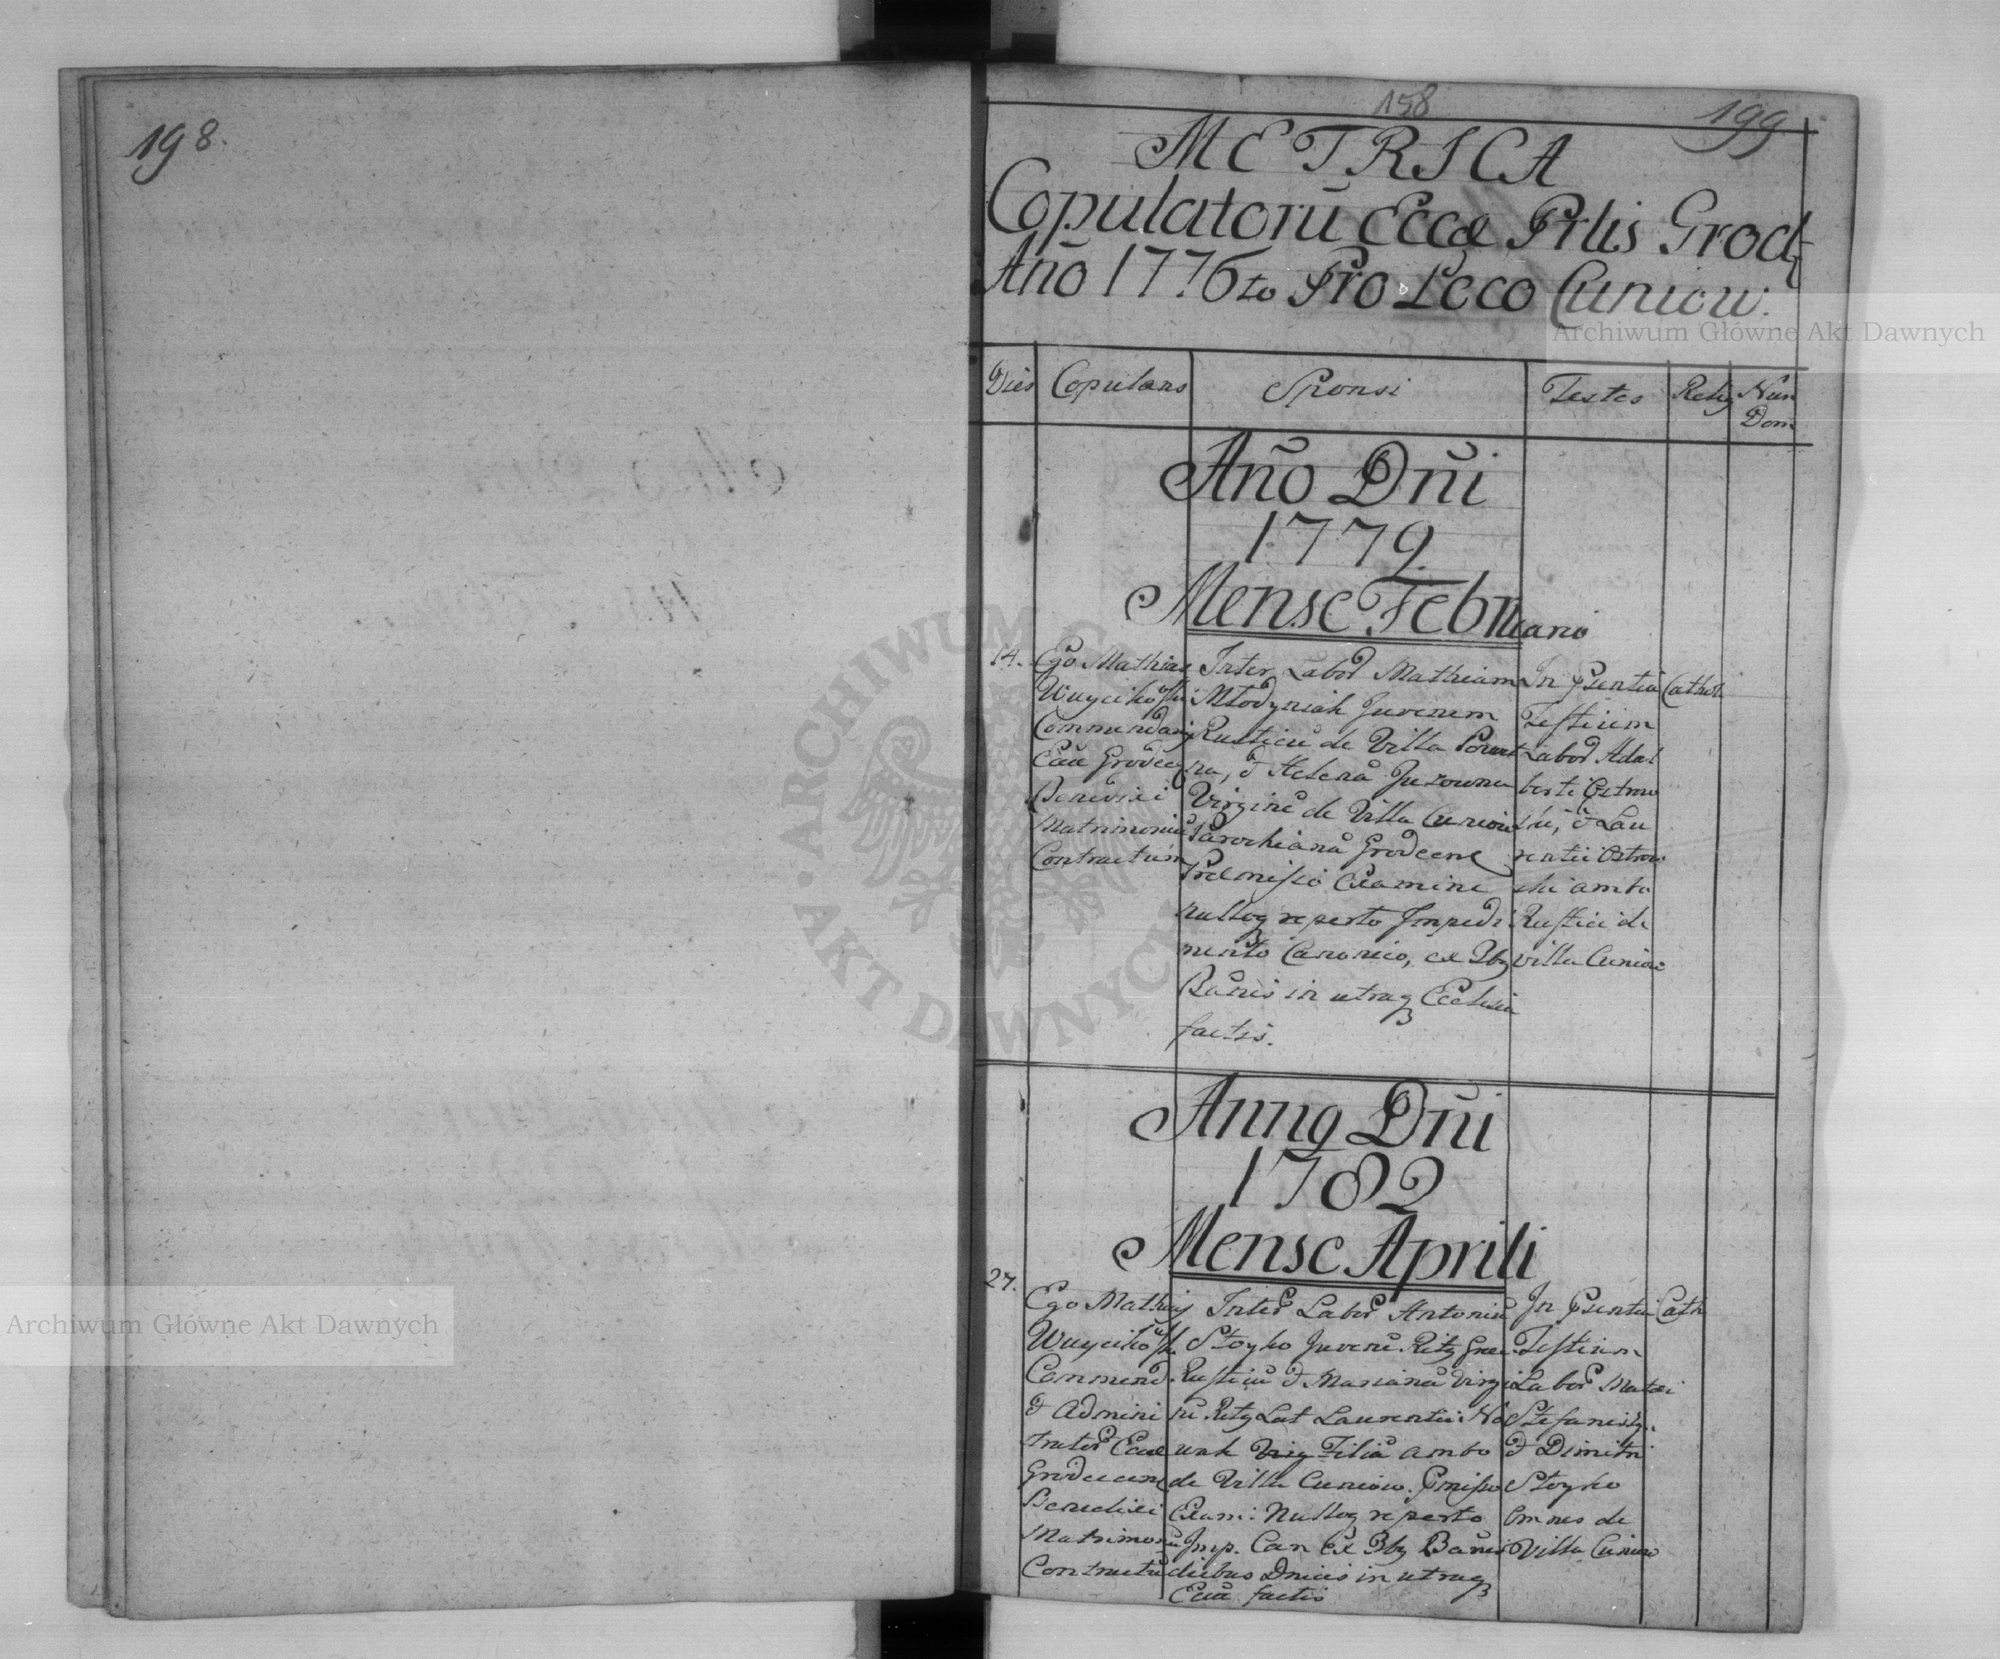 198.
158
199
METRICA
Copulatorū Eccæ Prlis Grod
Año 1776to Pro Loco Cuniow.
Dies
Copulans
Sponsi
Testes
Relig
Num
Dom
Año Dñi
1779
Mense Februario
14.
Ego Mathias
Wuycikowski
Commendarj
Eccæ Grodec
Benedixi
Matrimoniū
Contractum
Inter Labor Mathiam
Młodyniak Juvenem
Rusticū de Villa
na, & Helenā
Virginē de Villa Cuniow
Parochianā Grodecens
Præmisso Examine
nulloq reperto Impedi
mento Canonico, ex
Bānis in utraq Ecclesia
factis.
In pſentia
Testium
Labor Adal
berti Ostrow
ski, & Lau
rentii Ostrow
ski ambo
Rustici de
villa Cuniow
Cathol
Anno Dñi
1782
Mense Aprili
27.
Ego Mathias
Wuycikowsk
Commend
& Admini
strator Eccæ
Grodecens
Benedixi
Matrimoniū
Contractū
Inter Labor Antoniū
Stoyko Juvenē Rity Græc
Rusticū & Mariannā Virgi
nē Rity Lat Laurentii No
wak Filiā ambo
de Villa Cuniow. pmisso
Exam: Nulloq reperto
Imp. Can Ex Bānis
diebus Dnicis in utraq
Eccā factis
In pſentia
Testium
Labor Matæi
& Dimitri
Stoyko
Omnes de
Villa Cuniow
Cath
Archiwum Główne Akt Dawnych
Archiwum Główne Akt Dawnych
ARCHIWUM GŁÓWNE AKT DAWNYCH